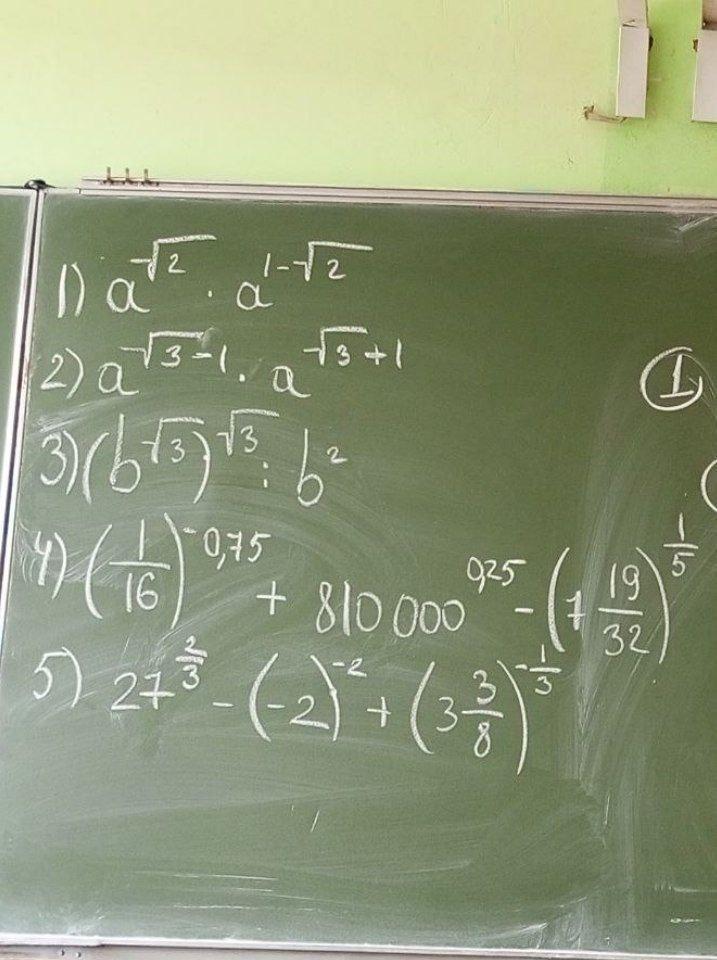 1) a^√2 · a^(1-√2)
2) a^(√3-1) · a^(√3+1)
3) (b^√3)^√3 : b^2
4) (1/16)^(-0,75) + 810 000^(0,25) - (7 19/32)^(1/5)
5) 27^(2/3) - (-2)^(-2) + (3 3/8)^(-1/3)
1